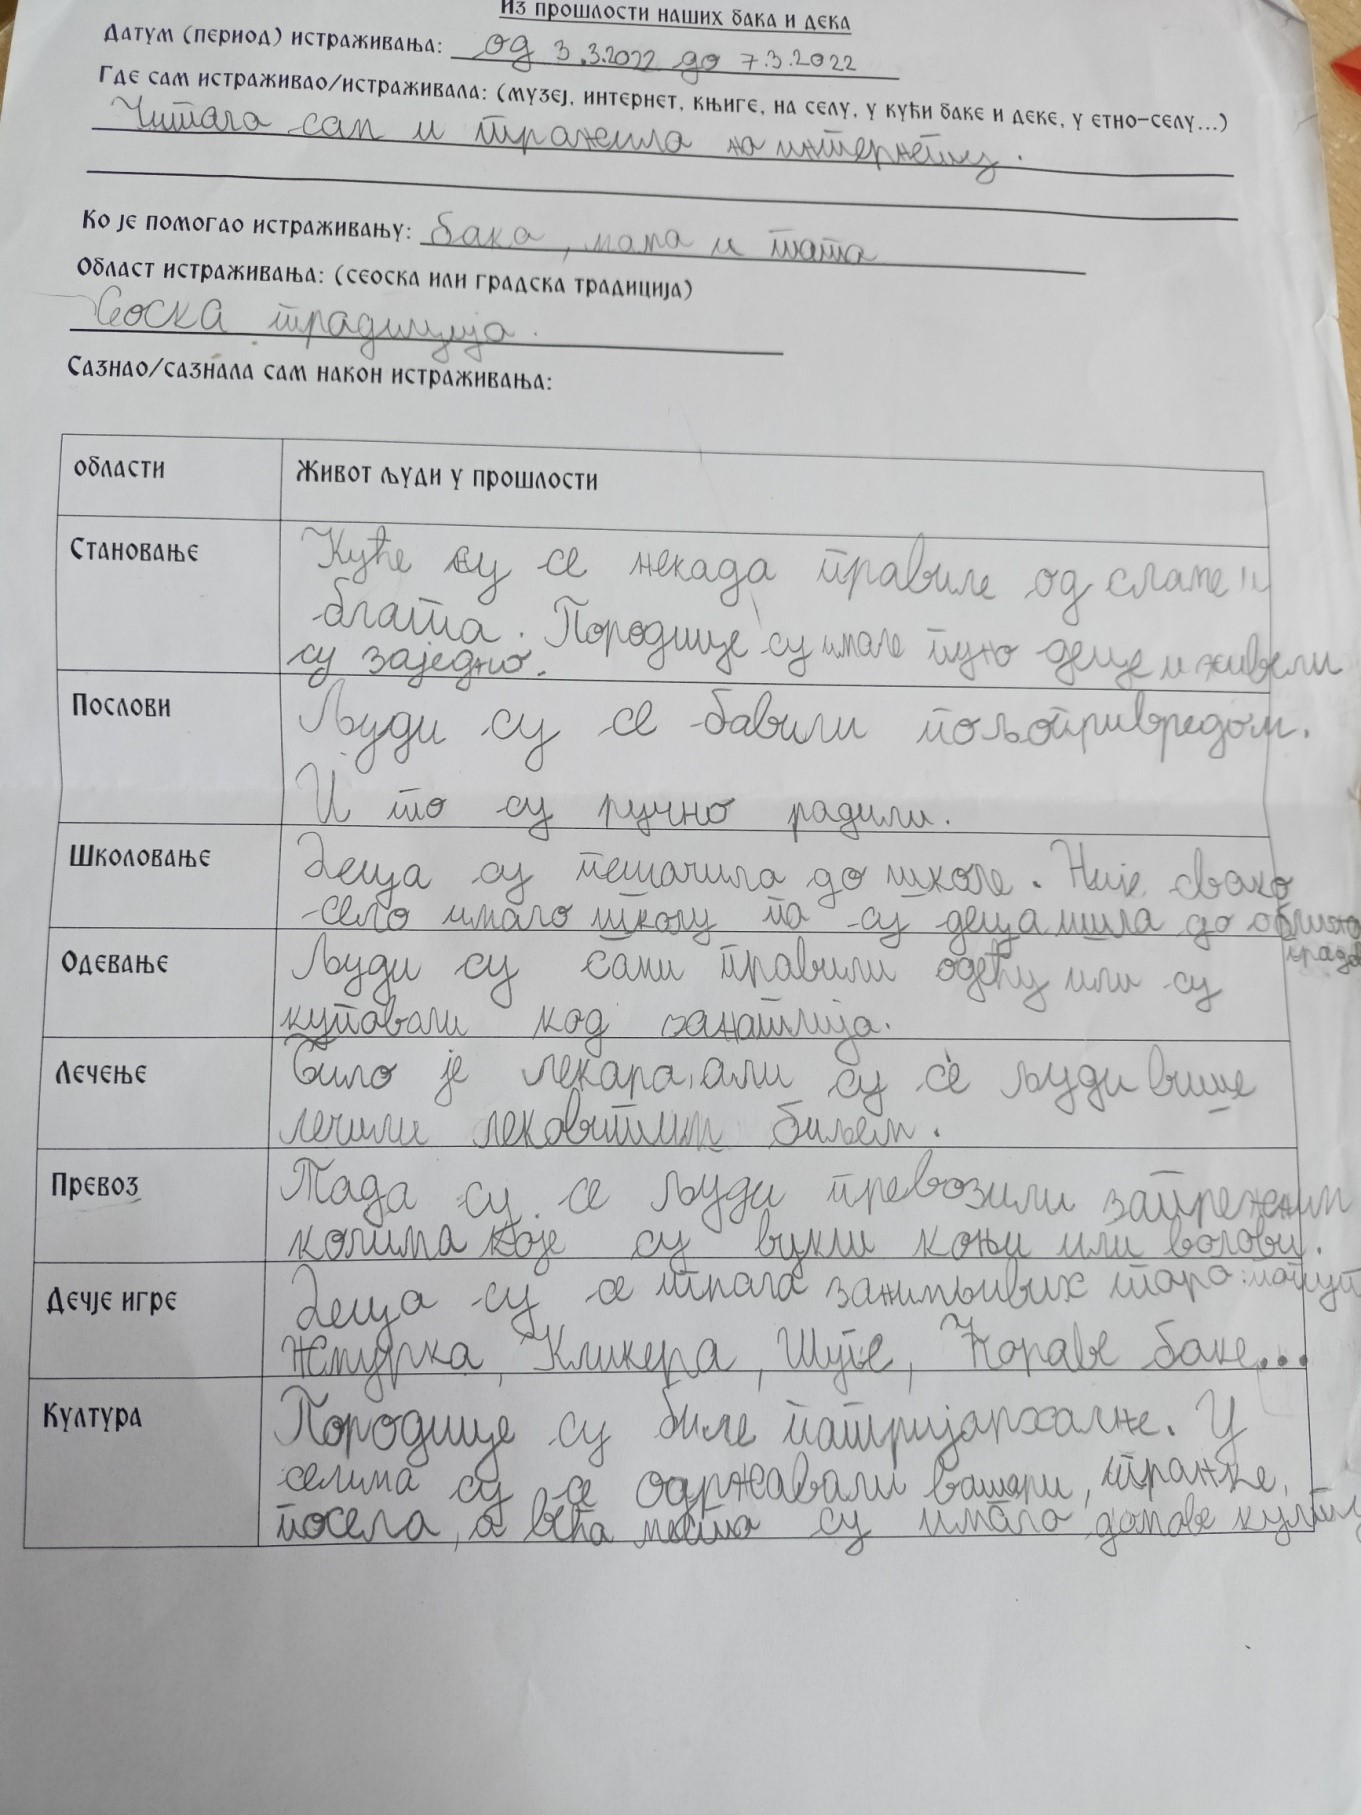 Из прошлости наших бака и дека
Датум (период) истраживања: од 3.3.2022 до 7.3.2022
Где сам истраживао/истраживала: (музеј, интернет, књиге, на селу, у кући баке и деке, у етно-селу...)
Читала сам и тражила на интернету.
Ко је помогао истраживању: бака, мама и тата
Област истраживања: (сеоска или градска традиција)
Соска традиција.
Сазнао/сазнала сам након истраживања:
области Живот људи у прошлости
Становање Куће су се некада правиле од сламе и
блата. Породице су имале пуно деце и живели
су заједно.
Послови Људи су се бавили пољопривредом.
И то су ручно радили.
Школовање Деца су пешачила до школе. Није свако
село имало школу па су деца ишла до
града
Одевање Људи су сами правили одећу или су
куповали код занатлија.
Лечење Било је лекара, али су се људи више
лечили лековитим биљем.
Превоз Тада су се људи превозили запрежним
колима које су вукли коњи или волови.
Дечје игре Деца су се играла занимљивих
Жмурка, Кликера, Шуге, Ћораве баке...
Култура Породице су биле патријархалне. У
селима су се одржавали вашари, игранке,
посела, а већа места су имала домове